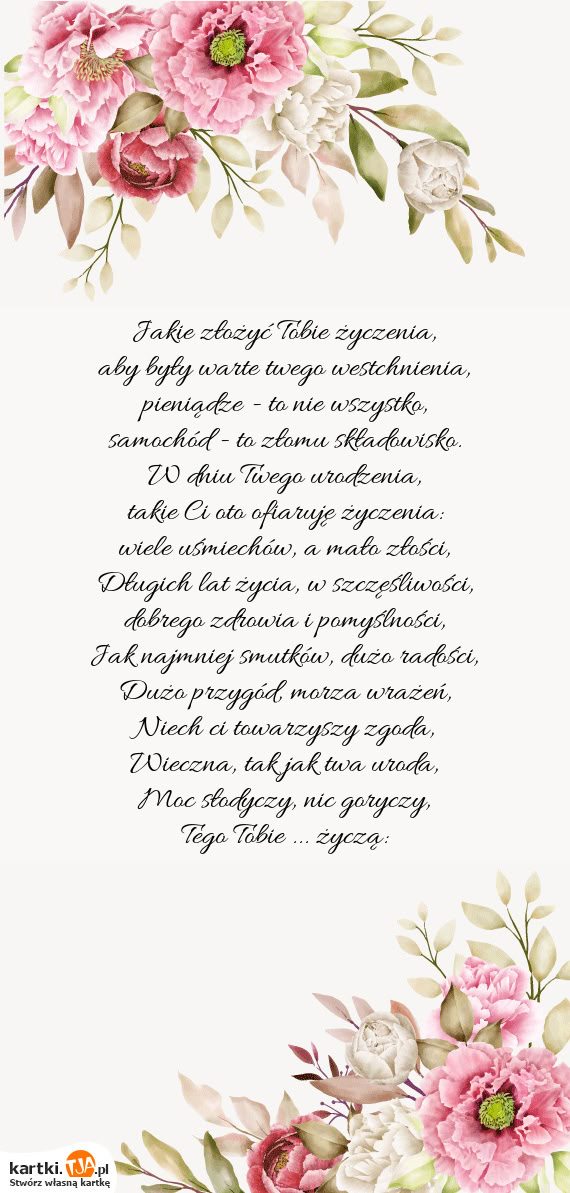 Jakie złożyć Tobie życzenia,
aby były warte twego westchnienia,
pieniądze - to nie wszystko,
samochód - to złomu składowisko.
W dniu Twego urodzenia,
takie Ci oto ofiaruję życzenia:
wiele uśmiechów, a mało złości,
Długich lat życia, w szczęśliwości,
dobrego zdrowia i pomyślności,
Jak najmniej smutków, dużo radości,
Dużo przygód, morza wrażeń,
Niech ci towarzyszy zgoda,
Wieczna, tak jak twa uroda,
Moc słodyczy, nic goryczy,
Tego Tobie ... życzą:
kartki.TJA.pl
Stwórz własną kartkę